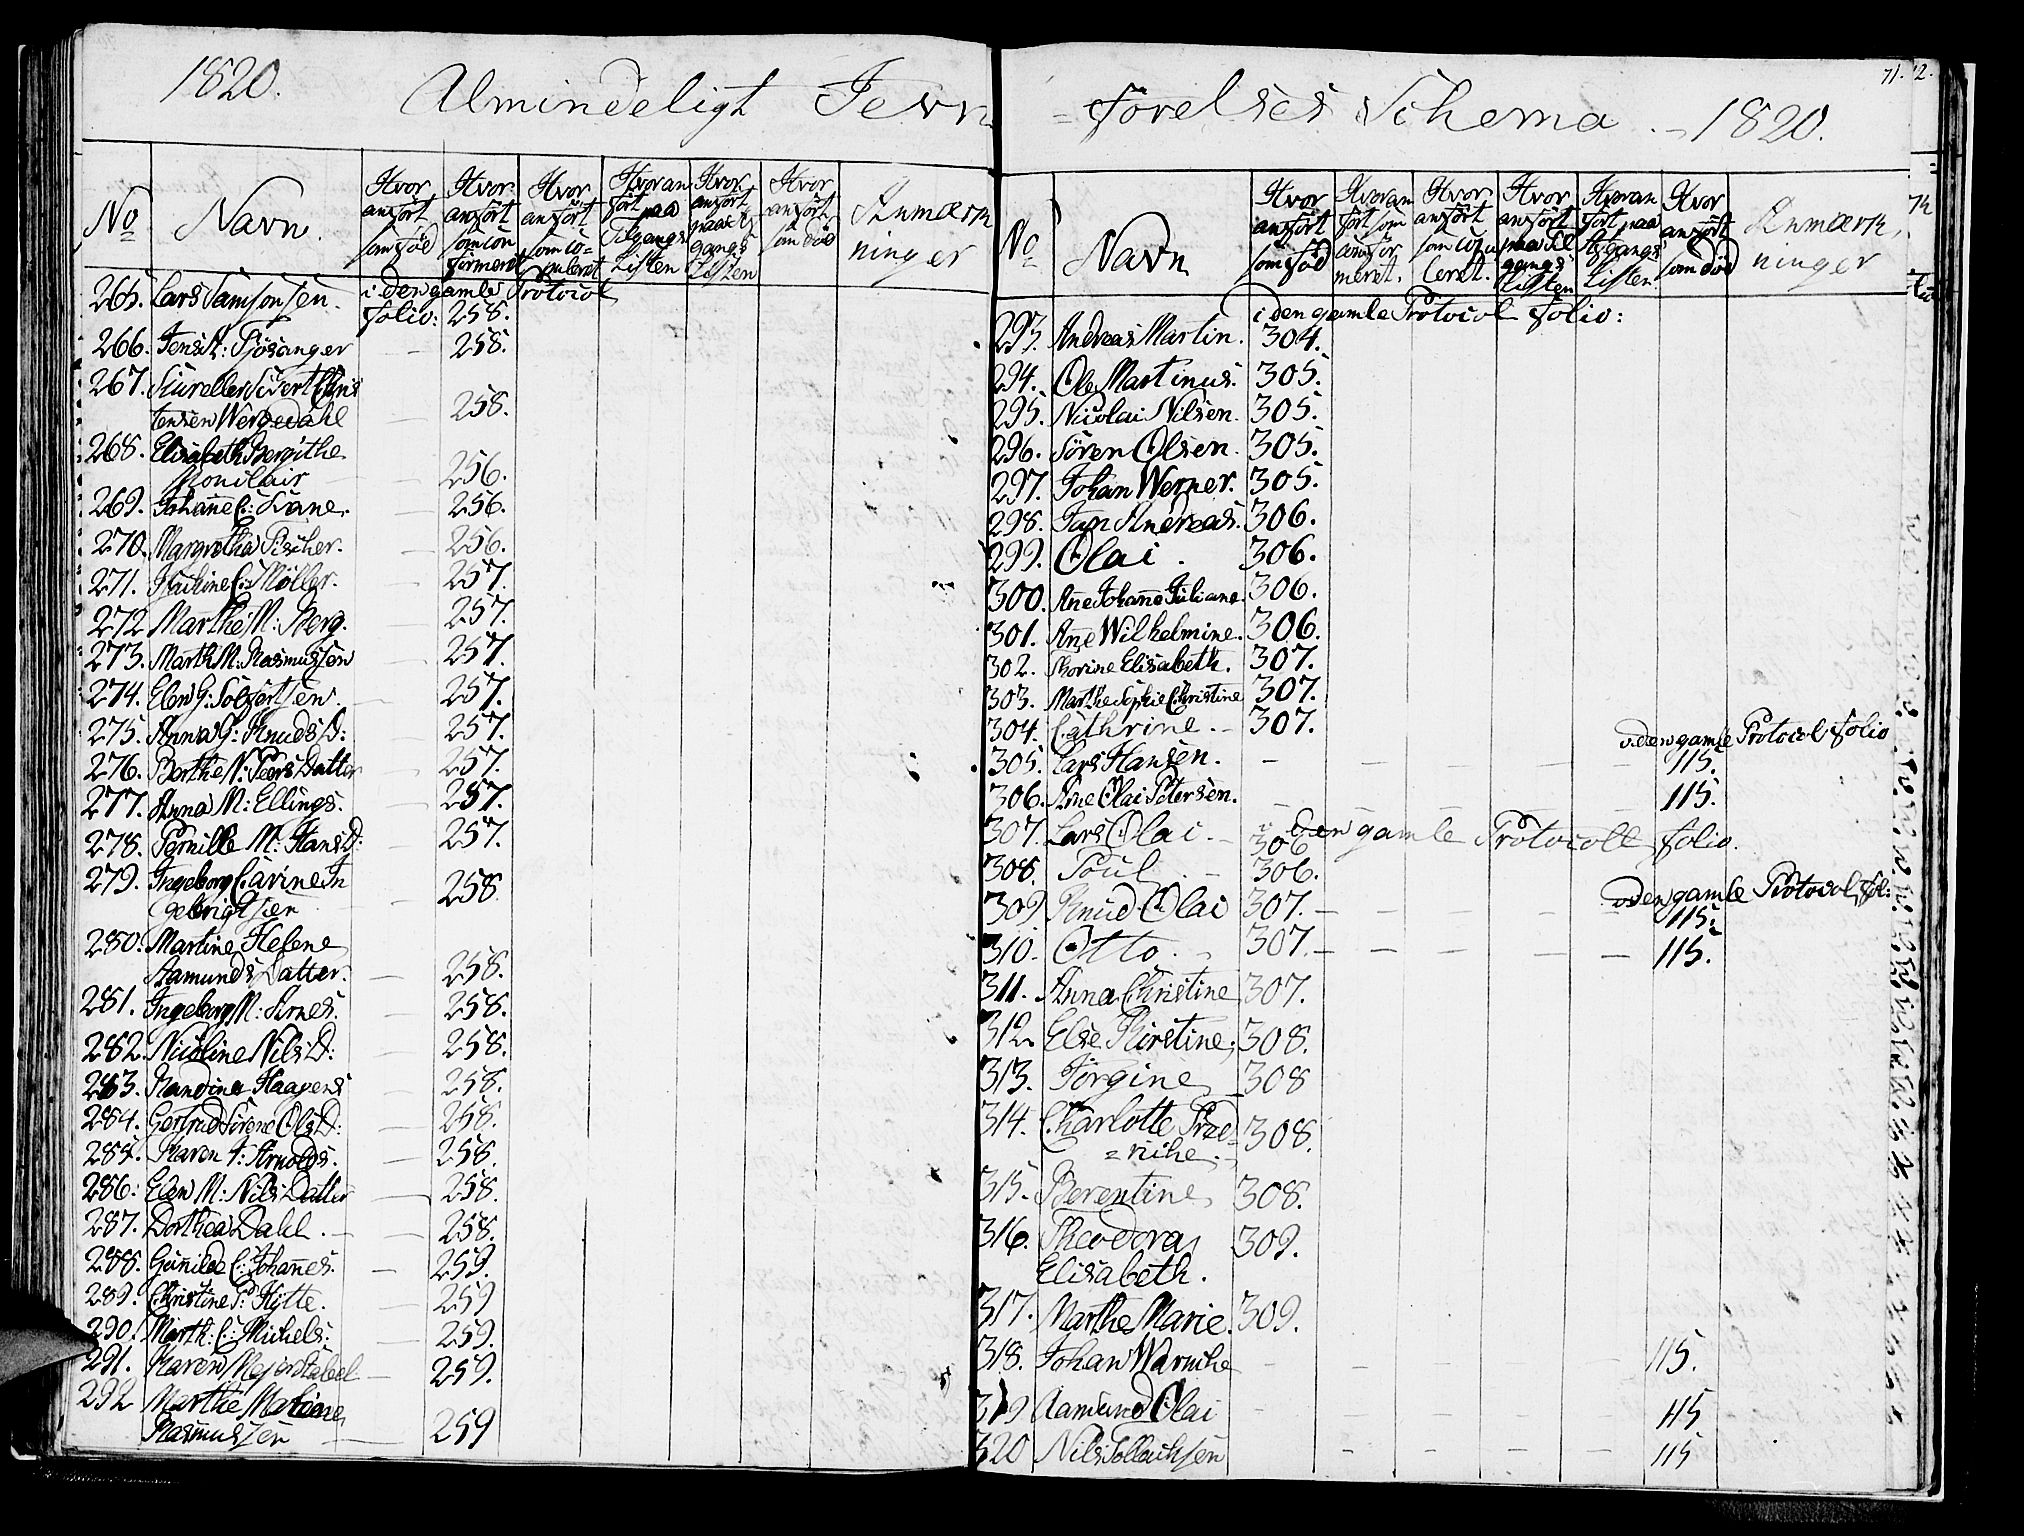 1820. Almindeligt Jevn
No Navn. Hvor anført som fød Hvor anført som confirmeret Hvor anført som copuleret Hvor anført paa Tilgangs Listen Hvor anført paa Afgangs Listen Hvor anført som død Anmærkninger
265. Lars Samsonsen. i den gamle Protocol
folio: 258.
266. Jens A: Tjösanger 258.
267. Siur eller Sivert Chris
tensen Wergedahl 258.
268. Elisabeth Bergithe
Monclair 256.
269. Johañe C: Lane. 256.
270. Margretha Fischer. 256.
271. Hachine C: Möller. 257.
272 Marthe M: Berg. 257.
273. Marth M: Rasmussen 257.
274. Elen G: Solfertsen. 257.
275. Anna G: Knuds D: 257.
276. Berthe N: Peers Datter 257.
277. Anna M: Ellings. 257.
278. Pernille M: Hans D: 257.
279. Ingeborg Carine In
gebrigtsen 258.
280. Martine Helene
Aamunds Datter. 258.
281. Ingeborg M: Arnes. 258.
282. Nicoline Nils D: 258.
283. Randina Haagens 258.
284. Gertrud Sörene Ols D: 258.
285. Karen A: Arnolds. 258.
286: Elen M: Nils Datter 258.
287. Dorthea Dahl. 258.
288. Guñild C: Johañes. 259.
289. Christine P: Hytte. 259
290. Marth: C: Michels: 259.
291. Karen Mejer Stabel 259.
292 Marthe Malene
Rasmussen 259
71. 2.
=förelses Schema. - 1820.
No Navn Hvor anført som fød Hvor anført som confirmeret. Hvor anført som copuleret. Hvor anført paa Tilgangs Listen Hvor anført paa Afgangs Listen Hvor anført som død Anmærkninger
i den gamle Protocol folio:
293. Andreas Martin. 304.
294. Ole Martinus. 305.
295. Nicolai Nilsen. 305.
296. Sören Olsen. 305.
297. Johan Werner. 305.
298. Jan Andreas. 306.
299. Olai. 306.
300. Añe Johañe Juliane. 306.
301. Añe Wilhelmine. 306.
302. Thorine Elisabeth. 307.
303. Marthe Sophie Christine 307.
304. Cathrine. 307.
i den gamle Protocol folio
305. Lars Hansen. 115.
306. Arne Olai Petersen. 115.
307. Lars Olai i den gamle Protocoll folio.
306
308. Poul 306.
i den gamle Protocol fol:
309 Knud Olai 307. 115.
310. Otto. 307. 115.
311. Anna Christine 307.
312. Else Kirstine, 308.
313. Jörgine 308
314. Charlotte Fred=
=riche. 308.
315. Berentine 308.
316. Theodora
Elisabeth. 309.
317. Marthe Marie. 309.
318. Johan Warncke 115.
319 Aamund Olai 115
320 Nils Tollachsen 115